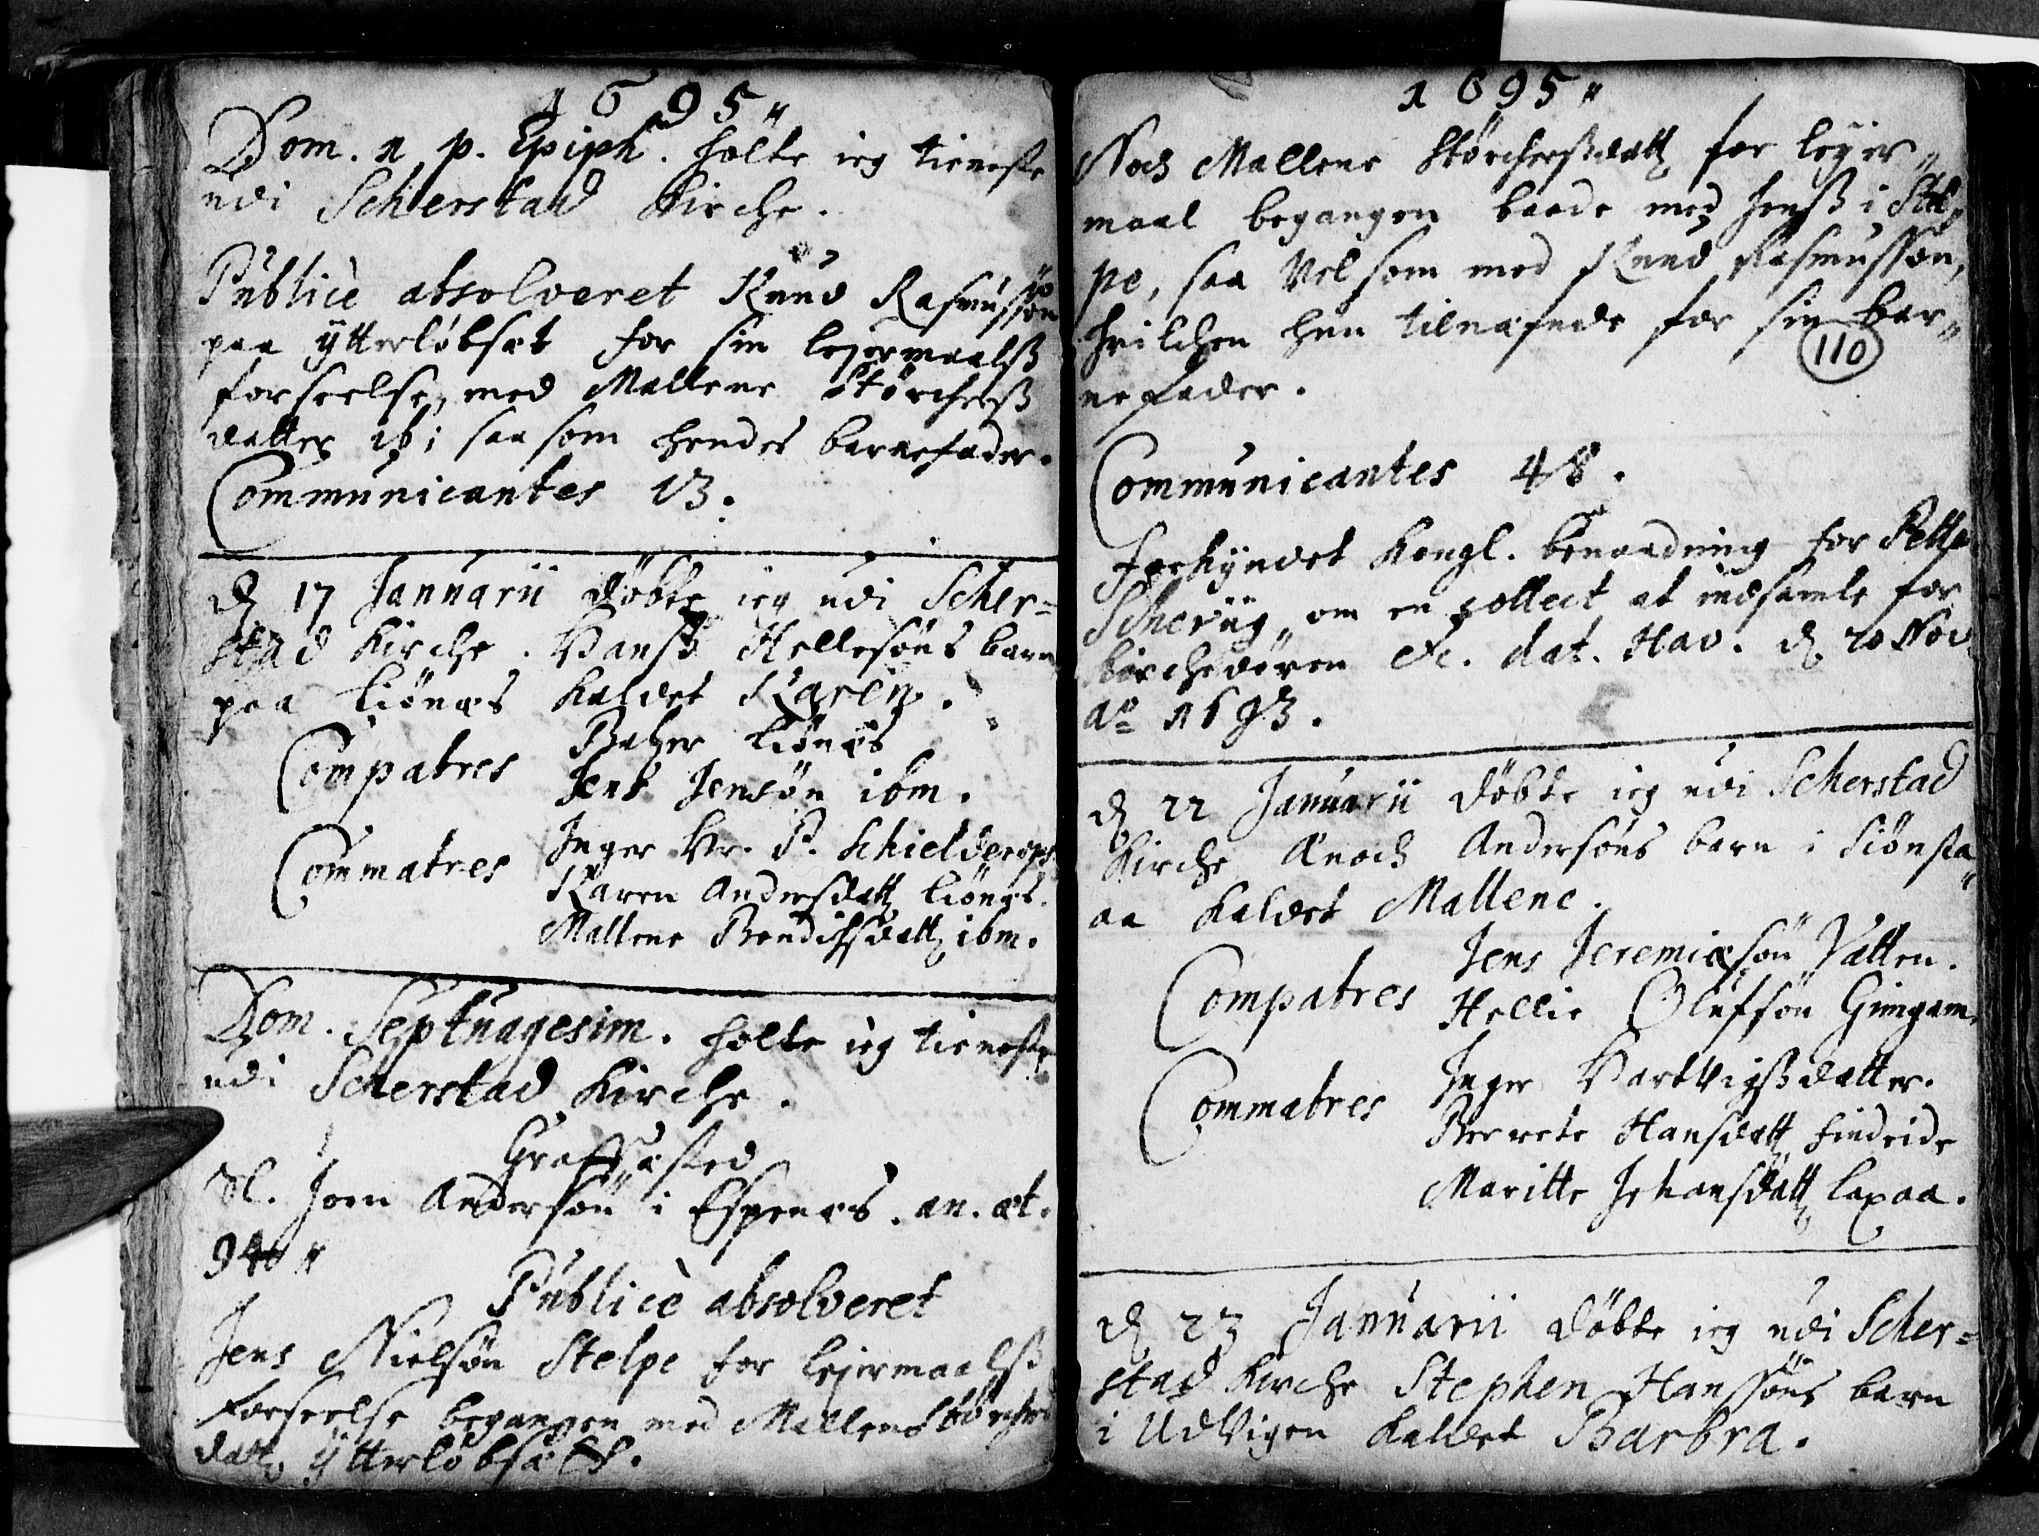 1695„
Dom. 1 p. Epiph. holte ieg tieneste
udi Scherstad Kirche.
Publicè absolveret Knud Rasmussøn
paa ytterløbsæt for sin lejermaalß
forseelse, med Mallene Størcherß
datter ib; saa som hendes barnefader.
Communicantes 13.
d 17 Januarii døbte ieg udi Scher=
stad Kirche. Hanss Hellesøns barn
paa Liønæs kaldet Karen.
Compatres Balzer Liønæs
Jens Jensøn ibm.
Commatres Inger Hr. P. Schielderops
Karen Andersdatt Liønæs.
Mallene Bendichsdatt ibm.
Dom. Septuagesim. holte ieg tieneste
udi Scherstad Kirche.
Graffæsted
Sl. Joen Andersøn i Espenæs. an. æt.
94„
Publicè absolveret
Jens Nielsøn Stelpe for lejermaalß
forseelse begangen med Mallene Størchers
datt, ytterløbsæt.
1695„
Noch Mallene Størcherßdatt for leyer„
maal begangen baade med Jenß i Stel„
pe, saa vel som med Knud Rasmussøn,
hvilchen hun tilnafnede for sin bar„
110
nefader.
Communicantes 48.
Forkyndet Kongl. benaadning for Pette
Scheriig, om en collect at indsamle for
kirchedøren &c. dat. Hav. d. 20 Nov.
ao 1693.
d 22 Januarii døbte ieg udi Scherstad
Kirche Ænoch Andersøns barn i Siønsta„
aa kaldet Mallene.
Compatres Jens Jeremiæsøn Valten.
Hellie Oluffsøn Gimgam.
Commatres Inger Hartvigßdatter.
Berrete Hansdatt Findeide
Maritte Johansdatt Laxaa.
d 23 Januarii døbte ieg udi Scher=
stad Kirche Stephen Hanssøns barn
i Udvigen kaldet Barbra.